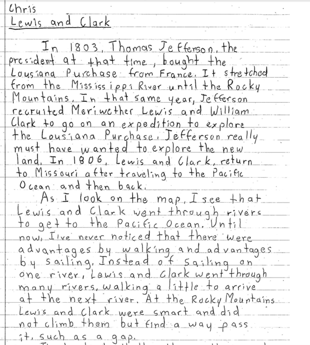 Chris
Lewis and Clark
In 1803, Thomas Jefferson, the
president at that time, bought the
Lousiana Purchase from France. It stretched
from the Mississippi River until the Rocky
Mountains. In that same year, Jefferson
recruited Meriwether Lewis and William
Clark to go on an expedition to explore
the Lousiana Purchase. Jefferson really
must have wanted to explore the new
land. In 1806, Lewis and Clark, return
to Missouri after traveling to the Pacific
Ocean and then back.
As I look on the map, I see that
Lewis and Clark went through rivers
to get to the Pacific Ocean. Until
now, I've never noticed that there were
advantages by walking and advantages
by sailing. Instead of sailing on
one river, Lewis and Clark went through
many rivers, walking a little to arrive
at the next river. At the Rocky Mountains
Lewis and Clark were smart and did
not climb them but find a way pass
it, such as a gap.